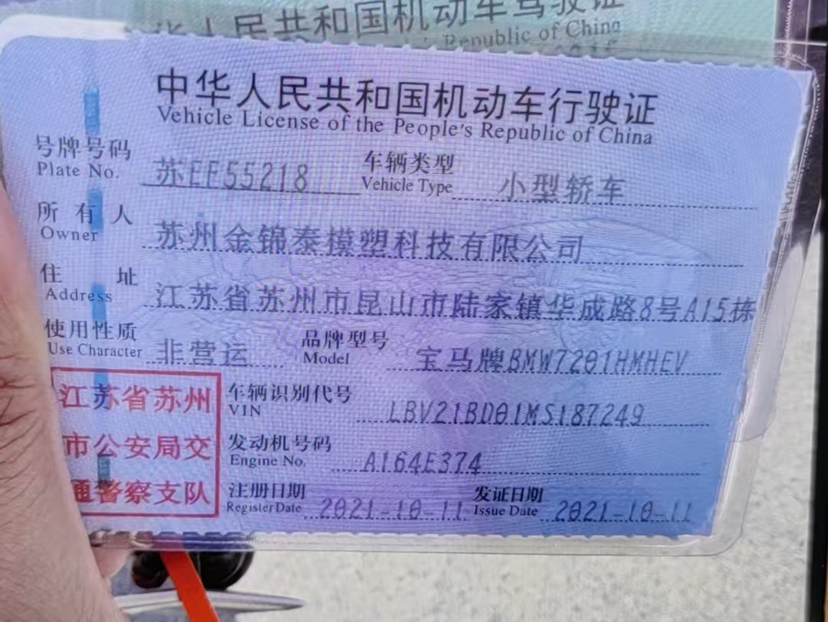 中华人民共和国机动车驾驶证
Republic of China
中华人民共和国机动车行驶证
Vehicle License of the People's Republic of China
号牌号码 苏EF55218 车辆类型 小型轿车
Plate No. Vehicle Type
所有人 苏州金锦泰模塑科技有限公司
Owner
住址 江苏省苏州市昆山市陆家镇华成路8号A15栋
Address
使用性质 非营运 品牌型号 宝马牌BMW7201HMHEV
Use Character Model
江苏省苏州
市公安局交
通警察支队
车辆识别代号 LBV21BD01MS187249
VIN
发动机号码 A164E374
Engine No.
注册日期 2021-10-11 发证日期 2021-10-11
Register Date Issue Date